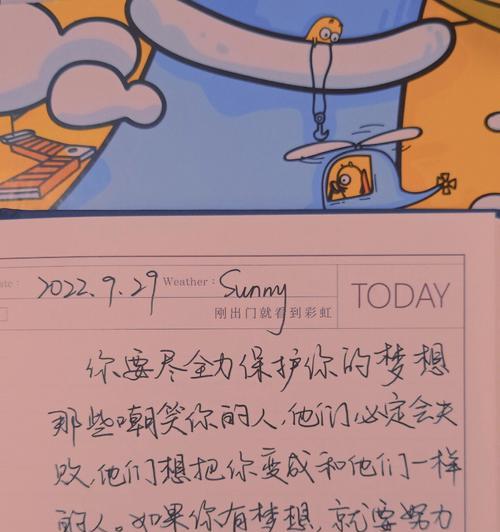 ate: 2022.9.29 Weather: Sunny
刚出门就看到彩虹
TODAY
你要尽全力保护你的梦想
那些嘲笑你的人,他们必定会失
败,他们想把你变成和他们一样
的人。如果你有梦想,就要努力